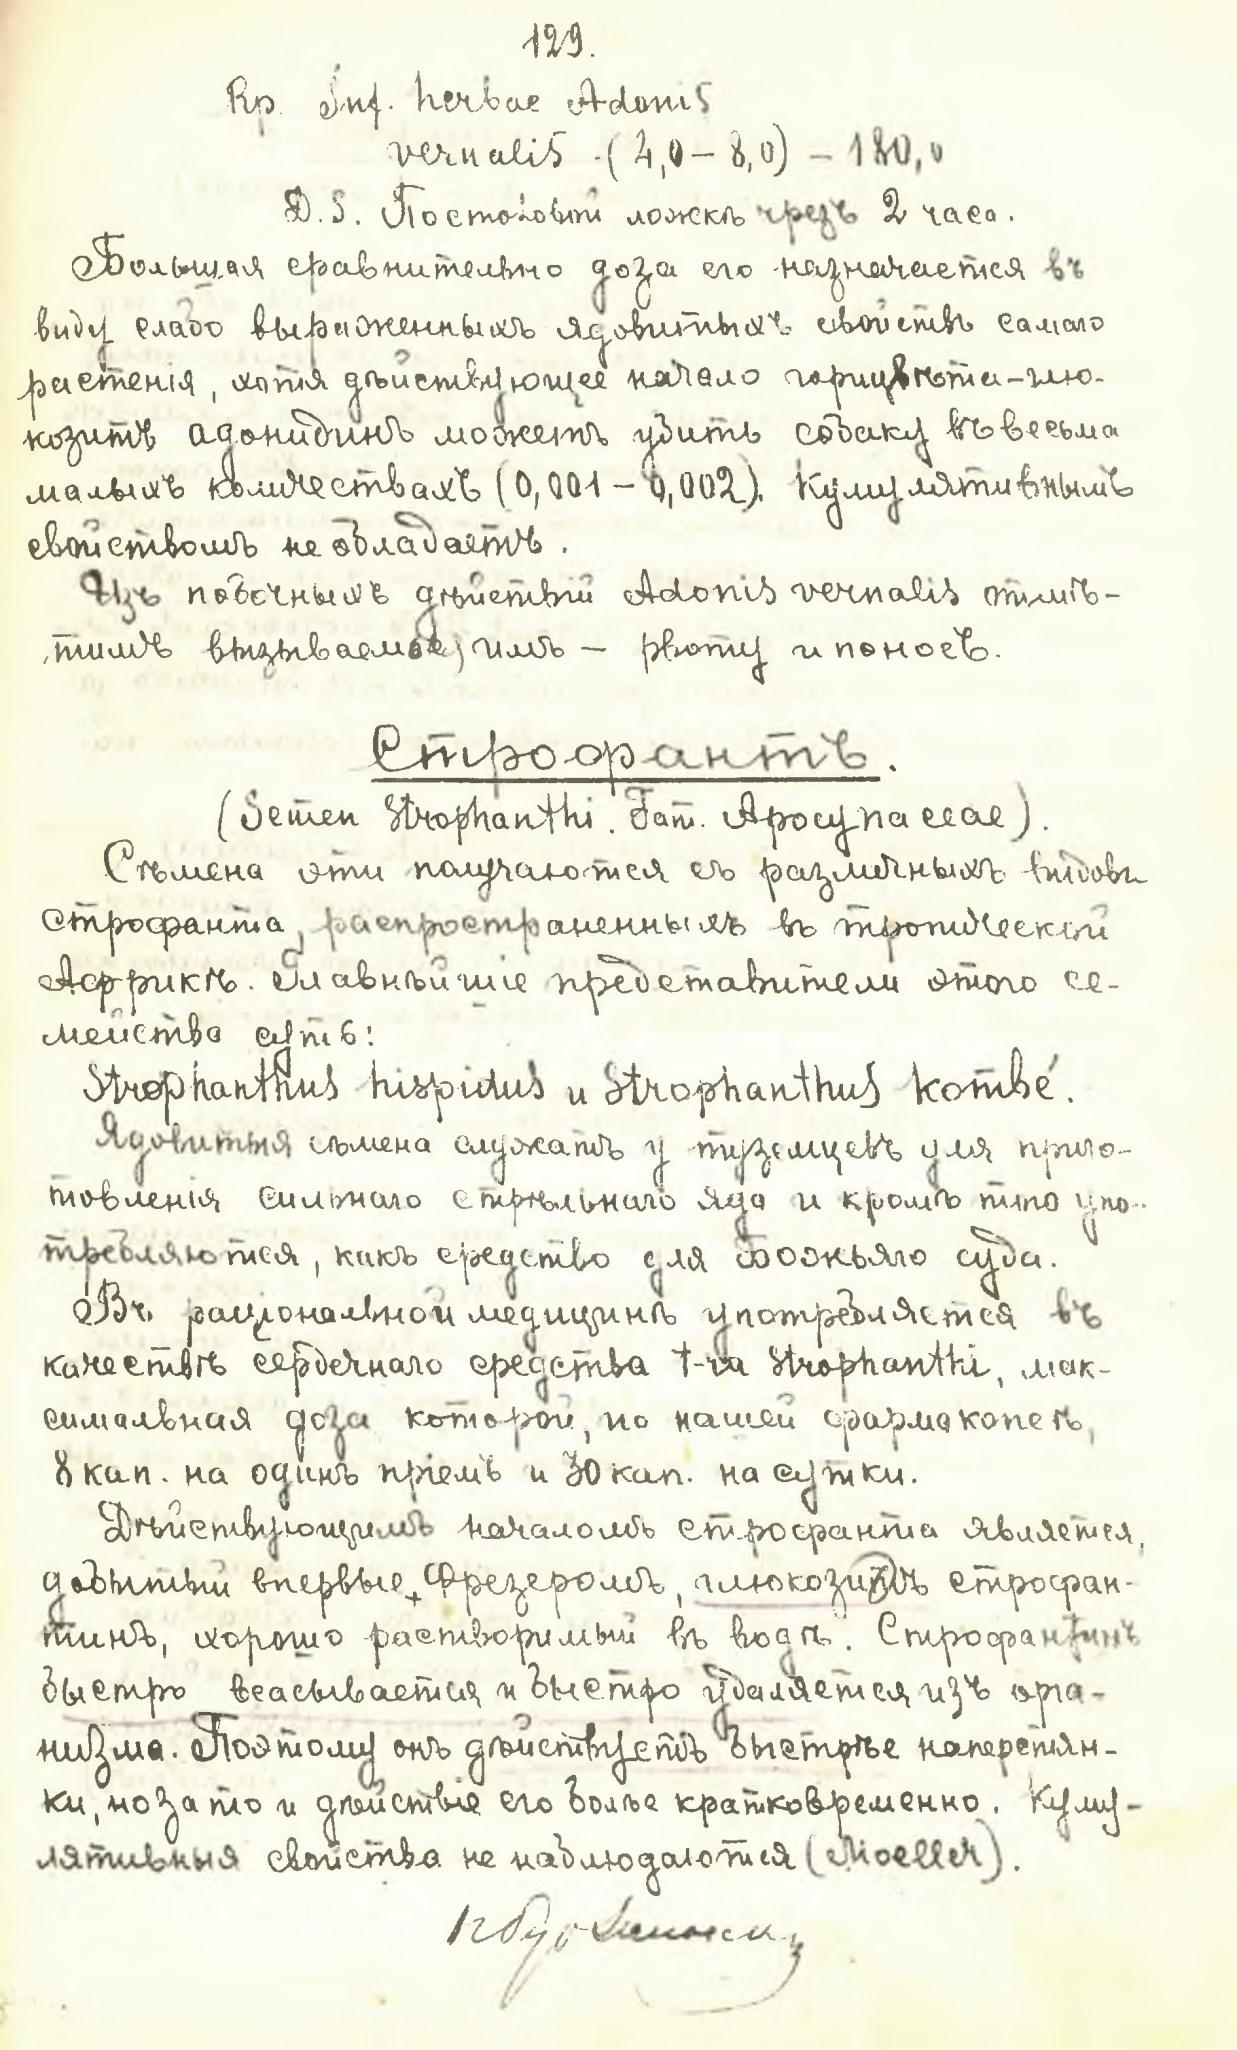 129.
Rp. Inf. herbae Adonis
vernalis (4,0 – 8,0) – 180,0
D. S. По столовой ложкѣ чрезъ 2 часа.
Большая сравнительно доза его назначается въ
виду слабо выраженныхъ ядовитыхъ свойствъ самаго
растенія, хотя дѣйствующее начало горицвѣта – глю-
козитъ адонидинъ можетъ убить собаку въ весьма
малыхъ количествахъ (0,001 – 0,002). Кумулятивнымъ
свойствомъ не обладаетъ.
Изъ побочныхъ дѣйствій Adonis vernalis отмѣ-
тимъ вызываемые имъ – рвоту и поносъ.
Строфантъ.
(Semen Strophanthi. Fam. Apocynaceae).
Сѣмена эти получаются съ различныхъ видовъ
строфанта, распространенныхъ въ тропической
Африкѣ. Главнѣйшіе представители этого се-
мейства суть:
Strophanthus hispidus и Strophanthus kombé.
Ядовитыя сѣмена служатъ у туземцевъ для приго-
товленія сильнаго стрѣльнаго яда и кромѣ того упо-
требляются, какъ средство для Божьяго суда.
Въ раціональной медицинѣ употребляется въ
качествѣ сердечнаго средства t-ra Strophanthi, мак-
симальная доза которой, по нашей фармакопеѣ,
8 кап. на одинъ пріемъ и 30 кап. на сутки.
Дѣйствующимъ началомъ строфанта является,
добытый впервые Фрезеромъ, глюкозитъ строфан-
тинъ, хорошо растворимый въ водѣ. Строфантинъ
быстро всасывается и быстро удаляется изъ орга-
низма. Поэтому онъ дѣйствуетъ быстрѣе наперстян-
ки, но зато и дѣйствіе его болѣе кратковременно. Куму-
лятивныя свойства не наблюдаются (Moeller).